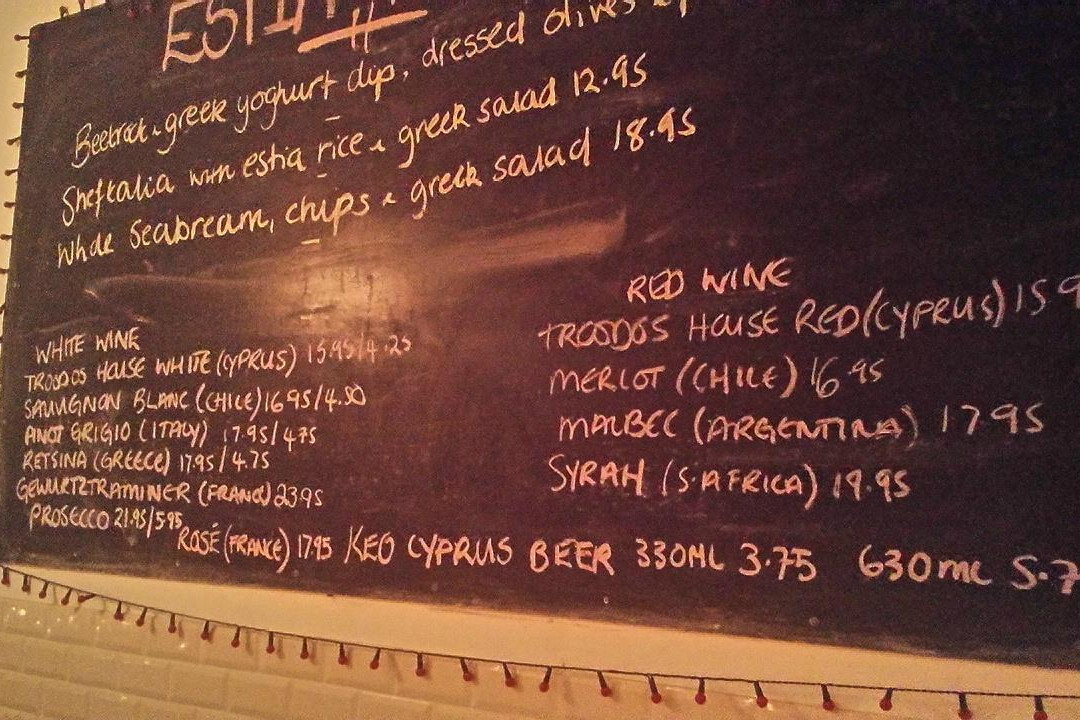 ESTIA
Beetroot & greek yoghurt dip, dressed olives
Sheftalia with estia rice & greek salad 12.95
Whole Seabream, chips & greek salad 18.95
WHITE WINE
TROODOS HOUSE WHITE (CYPRUS) 15.95/4.25
SAUVIGNON BLANC (CHILE) 16.95/4.50
PINOT GRIGIO (ITALY) 17.95/4.75
RETSINA (GREECE) 17.95/4.75
GEWURTZTRAMINER (FRANCE) 23.95
PROSECCO 21.95/5.95
RED WINE
TROODOS HOUSE RED (CYPRUS) 15.9
MERLOT (CHILE) 16.95
MALBEC (ARGENTINA) 17.95
SYRAH (S.AFRICA) 19.95
ROSÉ (FRANCE) 17.95 KEO CYPRUS BEER 330ML 3.75 630ML 5.7